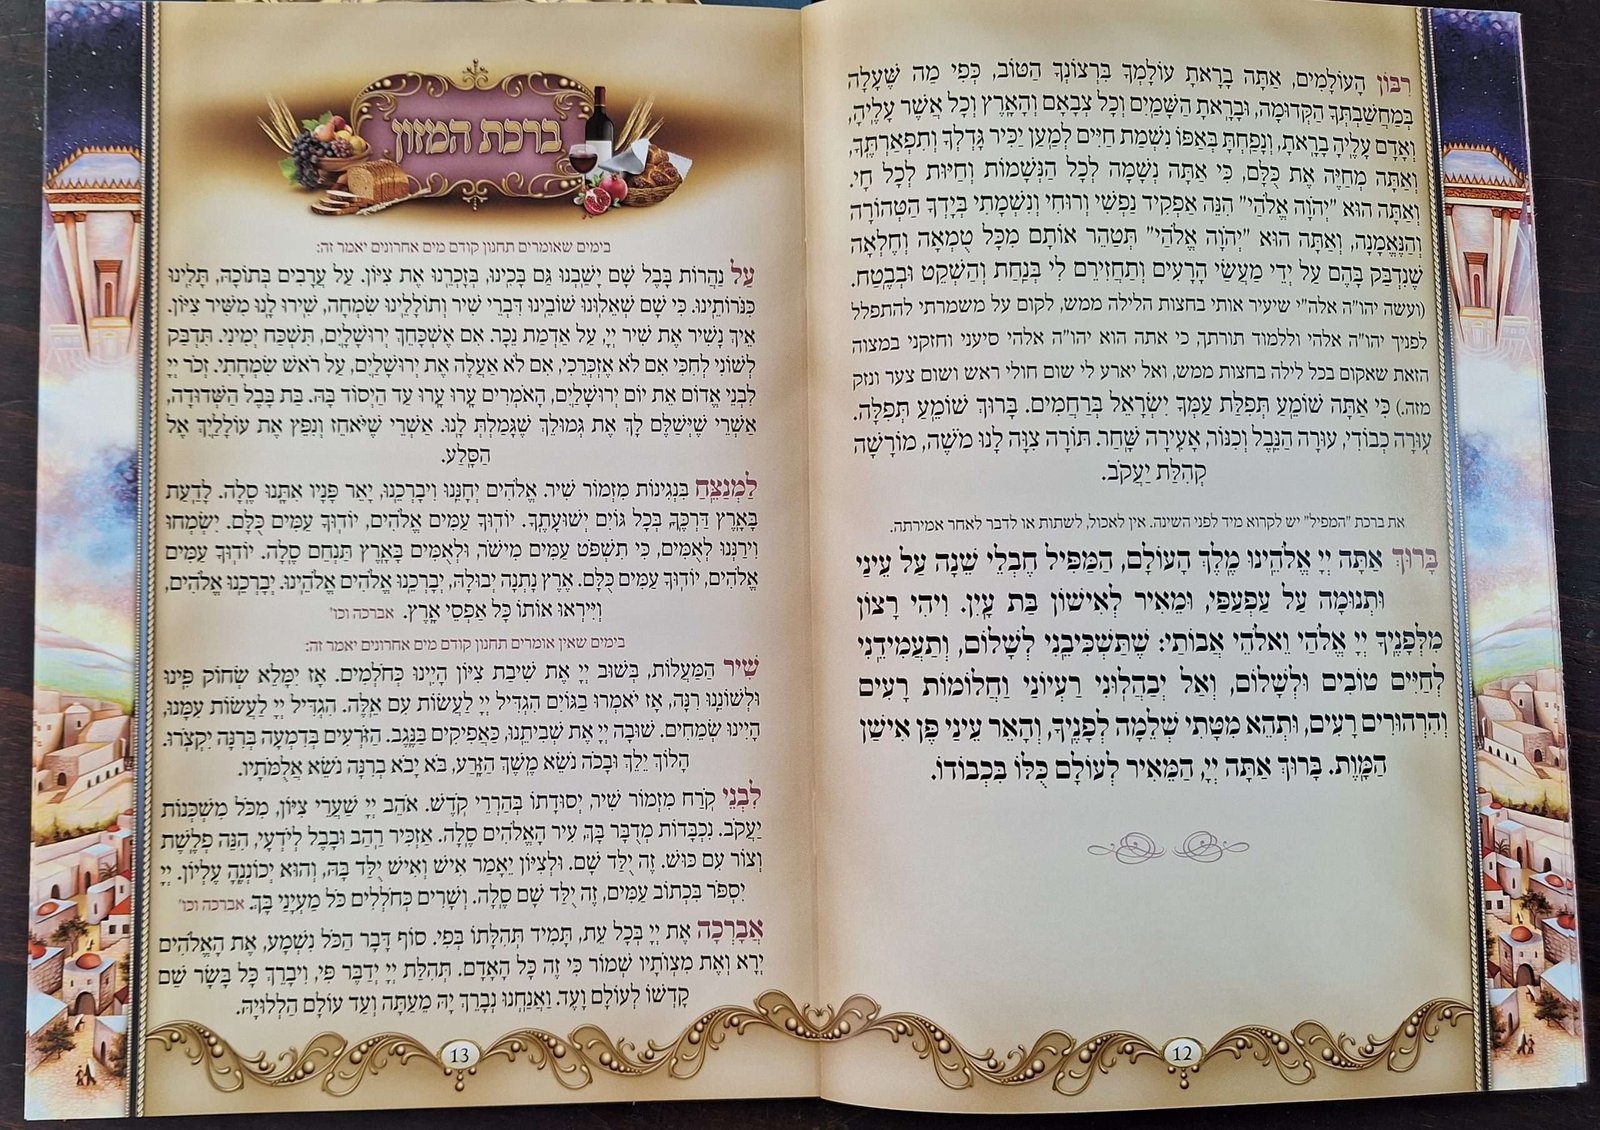 רִבּוֹן הָעוֹלָמִים, אַתָּה בָרָאתָ עוֹלָמְךָ בִּרְצוֹנְךָ הַטּוֹב, כְּפִי מַה שֶּׁעָלָה
בְּמַחֲשַׁבְתְּךָ הַקְּדוּמָה, וּבָרָאתָ הַשָּׁמַיִם וְכָל צְבָאָם וְהָאָרֶץ וְכָל אֲשֶׁר עָלֶיהָ,
וְאָדָם עָלֶיהָ בָרָאתָ, וְנָפַחְתָּ בְּאַפּוֹ נִשְׁמַת חַיִּים לְמַעַן יַכִּיר גָּדְלְךָ וְתִפְאַרְתֶּךָ,
וְאַתָּה מְחַיֶּה אֶת כֻּלָּם, כִּי אַתָּה נְשָׁמָה לְכָל הַנְּשָׁמוֹת וְחַיּוּת לְכָל חָי.
וְאַתָּה הוּא "יְהֹוָה אֱלֹהַי" הִנֵּה אַפְקִיד נַפְשִׁי וְרוּחִי וְנִשְׁמָתִי בְּיָדְךָ הַטְּהוֹרָה
וְהַנֶּאֱמָנָה, וְאַתָּה הוּא "יְהֹוָה אֱלֹהַי" תְּטַהֵר אוֹתָם מִכָּל טֻמְאָה וְחֶלְאָה
שֶׁנִּדְבַּק בָּהֶם עַל יְדֵי מַעֲשַׂי הָרָעִים וְתַחֲזִירֵם לִי בְּנַחַת וְהַשְׁקֵט וּבְבֶטַח.
(ועשה יהו"ה אלה"י שיעיר אותי בחצות הלילה ממש, לקום על משמרתי להתפלל
לפניך יהו"ה אלהי וללמוד תורתך, כי אתה הוא יהו"ה אלהי סיעני וחזקני במצוה
הזאת שאקום בכל לילה בחצות ממש, ואל יארע לי שום חולי ראש ושום צער ונזק
מזה.) כִּי אַתָּה שׁוֹמֵעַ תְּפִלַּת עַמְּךָ יִשְׂרָאֵל בְּרַחֲמִים. בָּרוּךְ שׁוֹמֵעַ תְּפִלָּה.
עוּרָה כְבוֹדִי, עוּרָה הַנֵּבֶל וְכִנּוֹר, אָעִירָה שָּׁחַר. תּוֹרָה צִוָּה לָנוּ מֹשֶׁה, מוֹרָשָׁה
קְהִלַּת יַעֲקֹב.
את ברכת "המפיל" יש לקרוא מיד לפני השינה. אין לאכול, לשתות או לדבר לאחר אמירתה.
בָּרוּךְ אַתָּה יְיָ אֱלֹהֵינוּ מֶלֶךְ הָעוֹלָם, הַמַּפִּיל חֶבְלֵי שֵׁנָה עַל עֵינַי
וּתְנוּמָה עַל עַפְעַפַּי, וּמֵאִיר לְאִישׁוֹן בַּת עָיִן. וִיהִי רָצוֹן
מִלְּפָנֶיךָ יְיָ אֱלֹהַי וֵאלֹהֵי אֲבוֹתַי: שֶׁתַּשְׁכִּיבֵנִי לְשָׁלוֹם, וְתַעֲמִידֵנִי
לְחַיִּים טוֹבִים וּלְשָׁלוֹם, וְאַל יְבַהֲלוּנִי רַעְיוֹנַי וַחֲלוֹמוֹת רָעִים
וְהִרְהוּרִים רָעִים, וּתְהֵא מִטָּתִי שְׁלֵמָה לְפָנֶיךָ, וְהָאֵר עֵינַי פֶּן אִישַׁן
הַמָּוֶת. בָּרוּךְ אַתָּה יְיָ, הַמֵּאִיר לְעוֹלָם כֻּלּוֹ בִּכְבוֹדוֹ.
12
ברכת המזון
בימים שאומרים תחנון קודם מים אחרונים יאמר זה:
עַל נַהֲרוֹת בָּבֶל שָׁם יָשַׁבְנוּ גַּם בָּכִינוּ, בְּזָכְרֵנוּ אֶת צִיּוֹן. עַל עֲרָבִים בְּתוֹכָהּ, תָּלִינוּ
כִּנֹּרוֹתֵינוּ. כִּי שָׁם שְׁאֵלוּנוּ שׁוֹבֵינוּ דִּבְרֵי שִׁיר וְתוֹלָלֵינוּ שִׂמְחָה, שִׁירוּ לָנוּ מִשִּׁיר צִיּוֹן.
אֵיךְ נָשִׁיר אֶת שִׁיר יְיָ, עַל אַדְמַת נֵכָר. אִם אֶשְׁכָּחֵךְ יְרוּשָׁלָיִם, תִּשְׁכַּח יְמִינִי. תִּדְבַּק
לְשׁוֹנִי לְחִכִּי אִם לֹא אֶזְכְּרֵכִי, אִם לֹא אַעֲלֶה אֶת יְרוּשָׁלַיִם, עַל רֹאשׁ שִׂמְחָתִי. זְכֹר יְיָ
לִבְנֵי אֱדוֹם אֵת יוֹם יְרוּשָׁלָיִם, הָאֹמְרִים עָרוּ עָרוּ עַד הַיְסוֹד בָּהּ. בַּת בָּבֶל הַשְּׁדוּדָה,
אַשְׁרֵי שֶׁיְּשַׁלֶּם לָךְ אֶת גְּמוּלֵךְ שֶׁגָּמַלְתְּ לָנוּ. אַשְׁרֵי שֶׁיֹּאחֵז וְנִפֵּץ אֶת עוֹלָלַיִךְ אֶל
הַסָּלַע.
לַמְנַצֵּחַ בִּנְגִינוֹת מִזְמוֹר שִׁיר. אֱלֹהִים יְחָנֵּנוּ וִיבָרְכֵנוּ, יָאֵר פָּנָיו אִתָּנוּ סֶלָה. לָדַעַת
בָּאָרֶץ דַּרְכֶּךָ, בְּכָל גּוֹיִם יְשׁוּעָתֶךָ. יוֹדוּךָ עַמִּים אֱלֹהִים, יוֹדוּךָ עַמִּים כֻּלָּם. יִשְׂמְחוּ
וִירַנְּנוּ לְאֻמִּים, כִּי תִשְׁפֹּט עַמִּים מִישֹׁר, וּלְאֻמִּים בָּאָרֶץ תַּנְחֵם סֶלָה. יוֹדוּךָ עַמִּים
אֱלֹהִים, יוֹדוּךָ עַמִּים כֻּלָּם. אֶרֶץ נָתְנָה יְבוּלָהּ, יְבָרְכֵנוּ אֱלֹהִים אֱלֹהֵינוּ. יְבָרְכֵנוּ אֱלֹהִים,
וְיִירְאוּ אוֹתוֹ כָּל אַפְסֵי אָרֶץ. אברכה וכו'
בימים שאין אומרים תחנון קודם מים אחרונים יאמר זה:
שִׁיר הַמַּעֲלוֹת, בְּשׁוּב יְיָ אֶת שִׁיבַת צִיּוֹן הָיִינוּ כְּחֹלְמִים. אָז יִמָּלֵא שְׂחוֹק פִּינוּ
וּלְשׁוֹנֵנוּ רִנָּה, אָז יֹאמְרוּ בַגּוֹיִם הִגְדִּיל יְיָ לַעֲשׂוֹת עִם אֵלֶּה. הִגְדִּיל יְיָ לַעֲשׂוֹת עִמָּנוּ,
הָיִינוּ שְׂמֵחִים. שׁוּבָה יְיָ אֶת שְׁבִיתֵנוּ, כַּאֲפִיקִים בַּנֶּגֶב. הַזֹּרְעִים בְּדִמְעָה בְּרִנָּה יִקְצֹרוּ.
הָלוֹךְ יֵלֵךְ וּבָכֹה נֹשֵׂא מֶשֶׁךְ הַזָּרַע, בֹּא יָבֹא בְרִנָּה נֹשֵׂא אֲלֻמֹּתָיו.
לִבְנֵי קֹרַח מִזְמוֹר שִׁיר, יְסוּדָתוֹ בְּהַרְרֵי קֹדֶשׁ. אֹהֵב יְיָ שַׁעֲרֵי צִיּוֹן, מִכֹּל מִשְׁכְּנוֹת
יַעֲקֹב. נִכְבָּדוֹת מְדֻבָּר בָּךְ, עִיר הָאֱלֹהִים סֶלָה. אַזְכִּיר רַהַב וּבָבֶל לְיֹדְעָי, הִנֵּה פְלֶשֶׁת
וְצוֹר עִם כּוּשׁ. זֶה יֻלַּד שָׁם. וּלְצִיּוֹן יֵאָמַר אִישׁ וְאִישׁ יֻלַּד בָּהּ, וְהוּא יְכוֹנְנֶהָ עֶלְיוֹן. יְיָ
יִסְפֹּר בִּכְתוֹב עַמִּים, זֶה יֻלַּד שָׁם סֶלָה. וְשָׁרִים כְּחֹלְלִים כֹּל מַעְיָנַי בָּךְ. אברכה וכו'
אֲבָרְכָה אֶת יְיָ בְּכָל עֵת, תָּמִיד תְּהִלָּתוֹ בְּפִי. סוֹף דָּבָר הַכֹּל נִשְׁמָע, אֶת הָאֱלֹהִים
יְרָא וְאֶת מִצְוֹתָיו שְׁמוֹר כִּי זֶה כָּל הָאָדָם. תְּהִלַּת יְיָ יְדַבֶּר פִּי, וִיבָרֵךְ כָּל בָּשָׂר שֵׁם
קָדְשׁוֹ לְעוֹלָם וָעֶד. וַאֲנַחְנוּ נְבָרֵךְ יָהּ מֵעַתָּה וְעַד עוֹלָם הַלְלוּיָהּ.
13